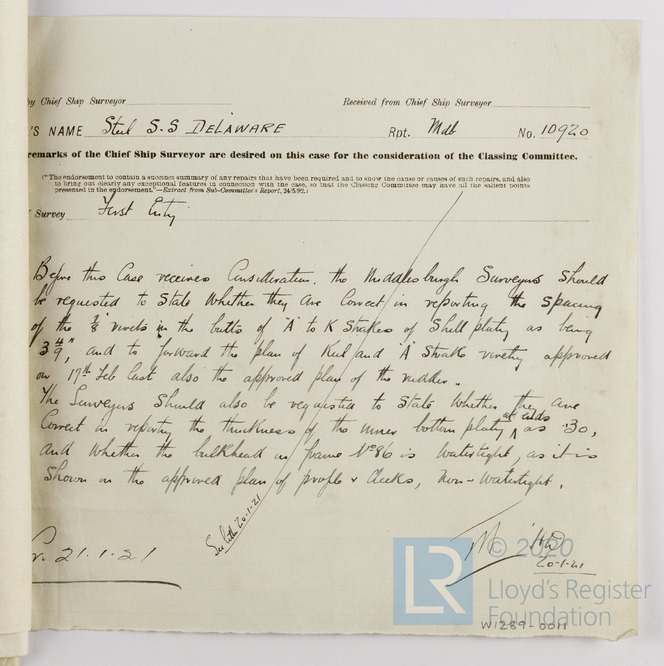 by Chief Ship Surveyor Received from Chief Ship Surveyor
'S NAME Steel S.S DELAWARE Rpt. Mdb No. 10920
remarks of the Chief Ship Surveyor are desired on this case for the consideration of the Classing Committee.
(The endorsement to contain a succinct summary of any repairs that have been required and to show the cause or causes of such repairs, and also
to bring out clearly any exceptional features in connection with the case, so that the Classing Committee may have all the salient points
presented in the endorsement."—Extract from Sub-Committee's Report, 24/5/92.)
f Survey First Entry
Before this Case receives Consideration, the Middlesbrough Surveyors should
be requested to State whether they are Correct in reporting the spacing
of the 7/8 rivets in the butts of 'A' to K Strakes of Shell plating as being
3 4/9", and to forward the plan of Keel and 'A' Strake riveting approved
on 17th Feb last also the approved plan of the rudder.
The Surveyors Should also be requested to State whether they are
Correct in reporting the thickness of the inner bottom plating at ends as .30,
and whether the bulkhead in frame No 86 is watertight, as it is
Shown on the approved plan of profile & decks, non-watertight.
See letter 20-1-21
21.1.21
20-1-21
LR © 2020
Lloyd's Register
Foundation
W1289-0011